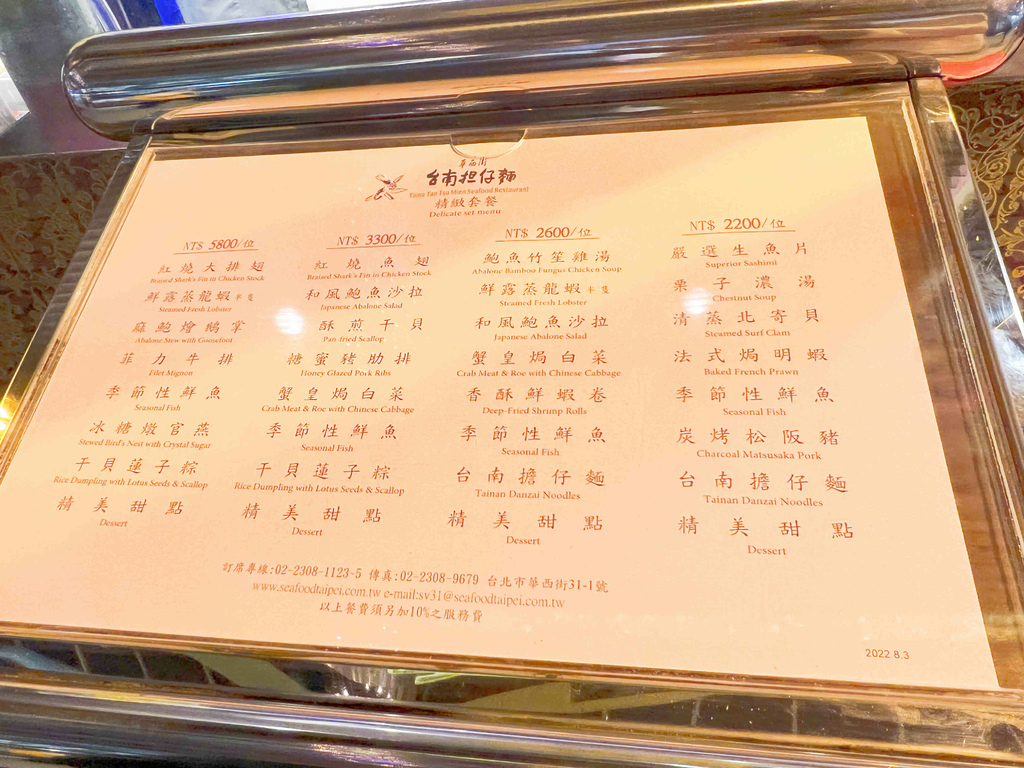 華西街
台南担仔麵
Taina Tan Tsu Mien Seafood Restaurant
精緻套餐
Delicate set menu
NT$ 5800/位
紅燒大排翅
Braised Shark's Fin in Chicken Stock
鮮露蒸龍蝦半隻
Steamed Fresh Lobster
麻鮑燴鵝掌
Abalone Stew with Goosefoot
菲力牛排
Filet Mignon
季節性鮮魚
Seasonal Fish
冰糖燉官燕
Stewed Bird's Nest with Crystal Sugar
干貝蓮子粽
Rice Dumpling with Lotus Seeds & Scallop
精美甜點
Dessert
NT$ 3300/位
紅燒魚翅
Braised Shark's Fin in Chicken Stock
和風鮑魚沙拉
Japanese Abalone Salad
酥煎干貝
Pan-fried Scallop
糖蜜豬肋排
Honey Glazed Pork Ribs
蟹皇焗白菜
Crab Meat & Roe with Chinese Cabbage
季節性鮮魚
Seasonal Fish
干貝蓮子粽
Rice Dumpling with Lotus Seeds & Scallop
精美甜點
Dessert
NT$ 2600/位
鮑魚竹笙雞湯
Abalone Bamboo Fungus Chicken Soup
鮮露蒸龍蝦半隻
Steamed Fresh Lobster
和風鮑魚沙拉
Japanese Abalone Salad
蟹皇焗白菜
Crab Meat & Roe with Chinese Cabbage
香酥鮮蝦卷
Deep-Fried Shrimp Rolls
季節性鮮魚
Seasonal Fish
台南擔仔麵
Tainan Danzai Noodles
精美甜點
Dessert
NT$ 2200/位
嚴選生魚片
Superior Sashimi
栗子濃湯
Chestnut Soup
清蒸北寄貝
Steamed Surf Clam
法式焗明蝦
Baked French Prawn
季節性鮮魚
Seasonal Fish
炭烤松阪豬
Charcoal Matsusaka Pork
台南擔仔麵
Tainan Danzai Noodles
精美甜點
Dessert
訂席專線:02-2308-1123-5 傳真:02-2308-9679 台北市華西街31-1號
www.seafoodtaipei.com.tw e-mail:sv31@seafoodtaipei.com.tw
以上餐費須另加10%之服務費
2022.8.3